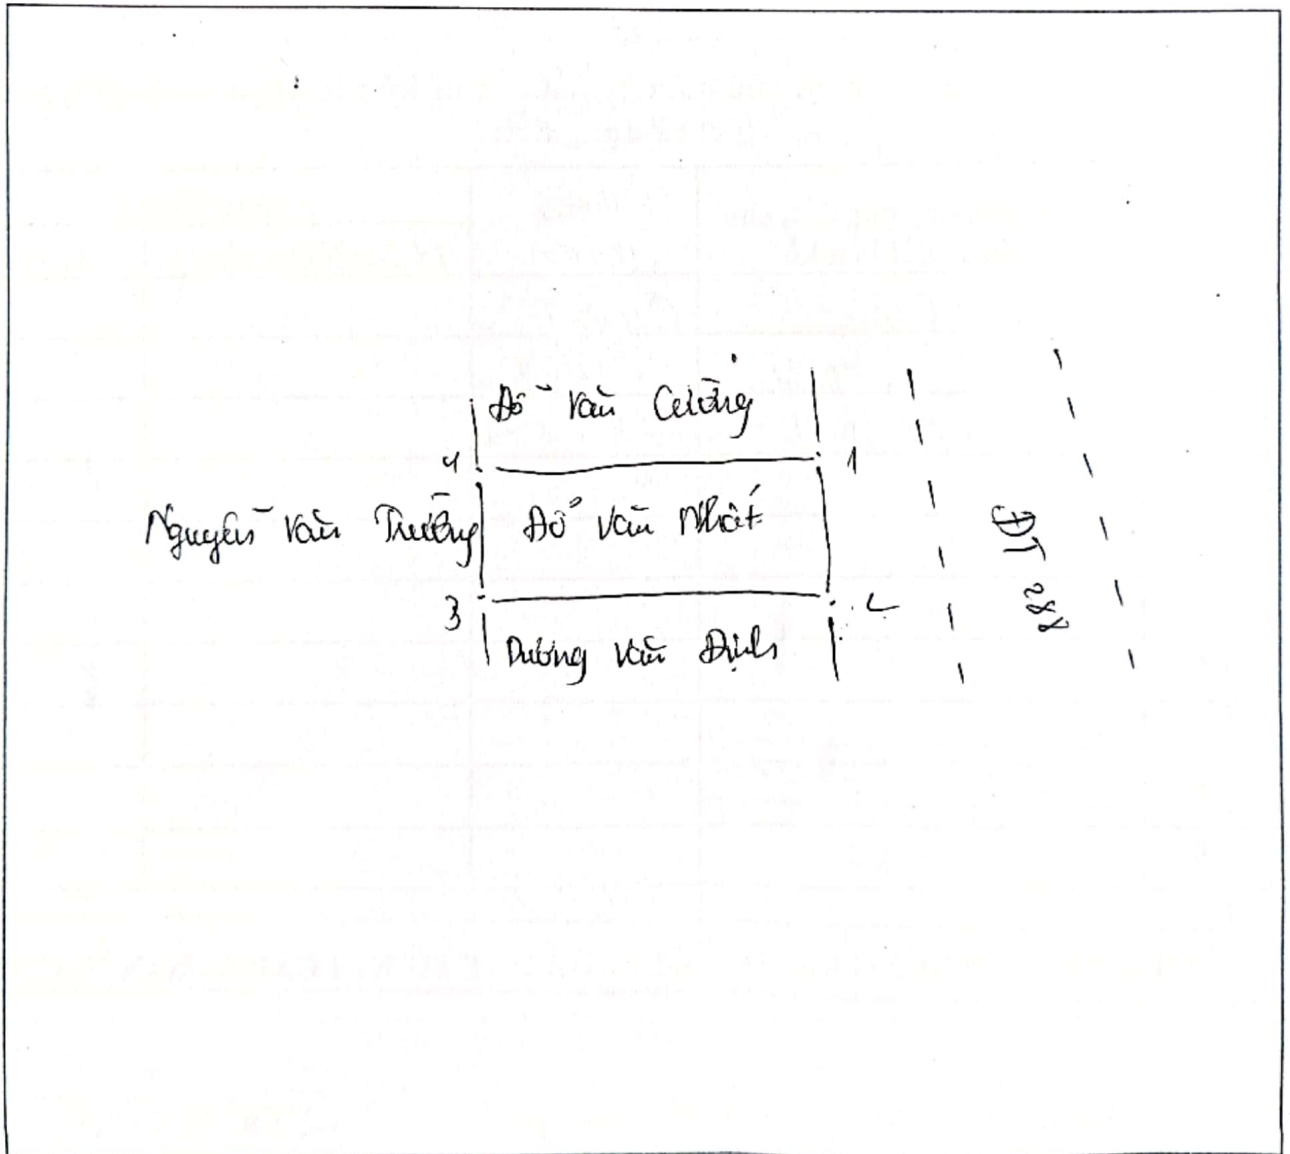 Đỗ Văn Cường
4
1
Nguyễn Văn Trường
Đỗ Văn Nhất
ĐT 288
3
2
Dương Văn Định